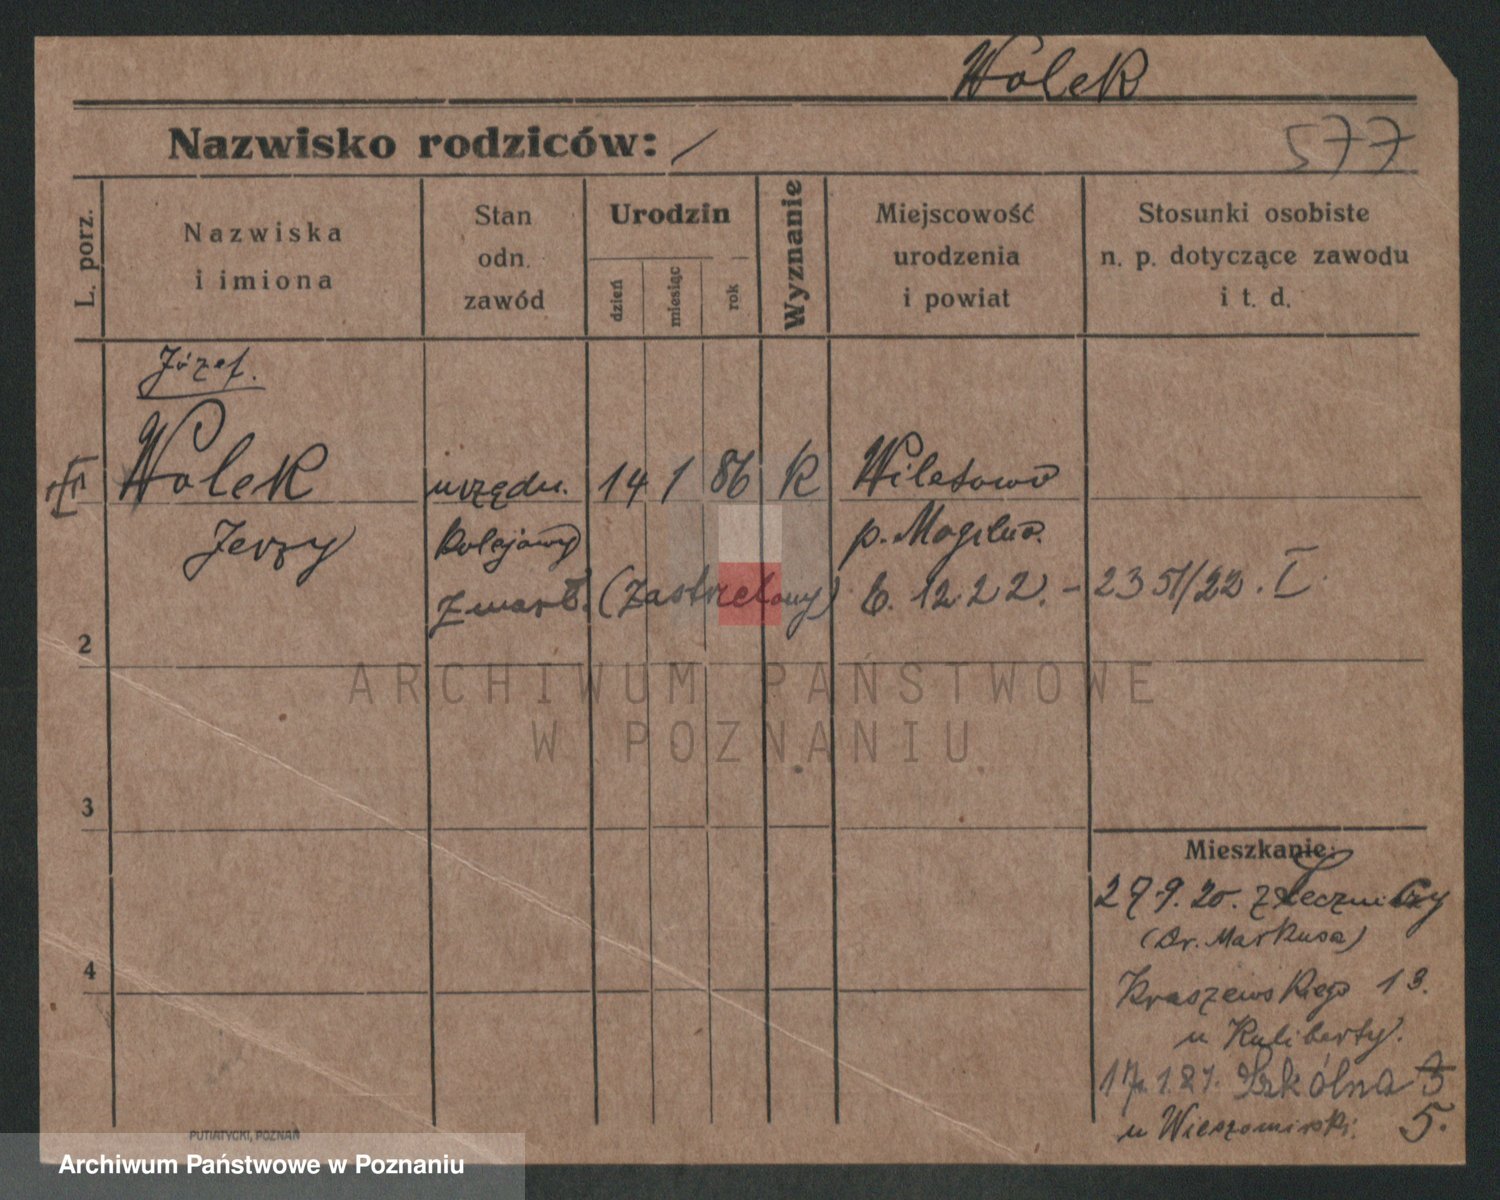 Wolek
Nazwisko rodziców: /
577
L. porz.
Nazwiska
i imiona
Stan
odn.
zawód
Urodzin
dzień
miesiąc
rok
Wyznanie
Miejscowość
urodzenia
i powiat
Stosunki osobiste
n. p. dotyczące zawodu
i t. d.
Józef.
Wolek urzędn. 14 1 86 K Wilatowo
Jerzy kolejowy p. Mogilno.
zmarł. (zastrzelony) 6. 12. 22. - 2351/22. I.
2
3
4
Mieszkanie:
27.9. 20. z Lecznicy
(Dr. Markusa)
Kraszewskiego 13.
u Kuliberty.
17.1.21. Szkólna 3
u 5.
PUTIATYCKI, POZNAŃ
ARCHIWUM PAŃSTWOWE
W POZNANIU
Archiwum Państwowe w Poznaniu